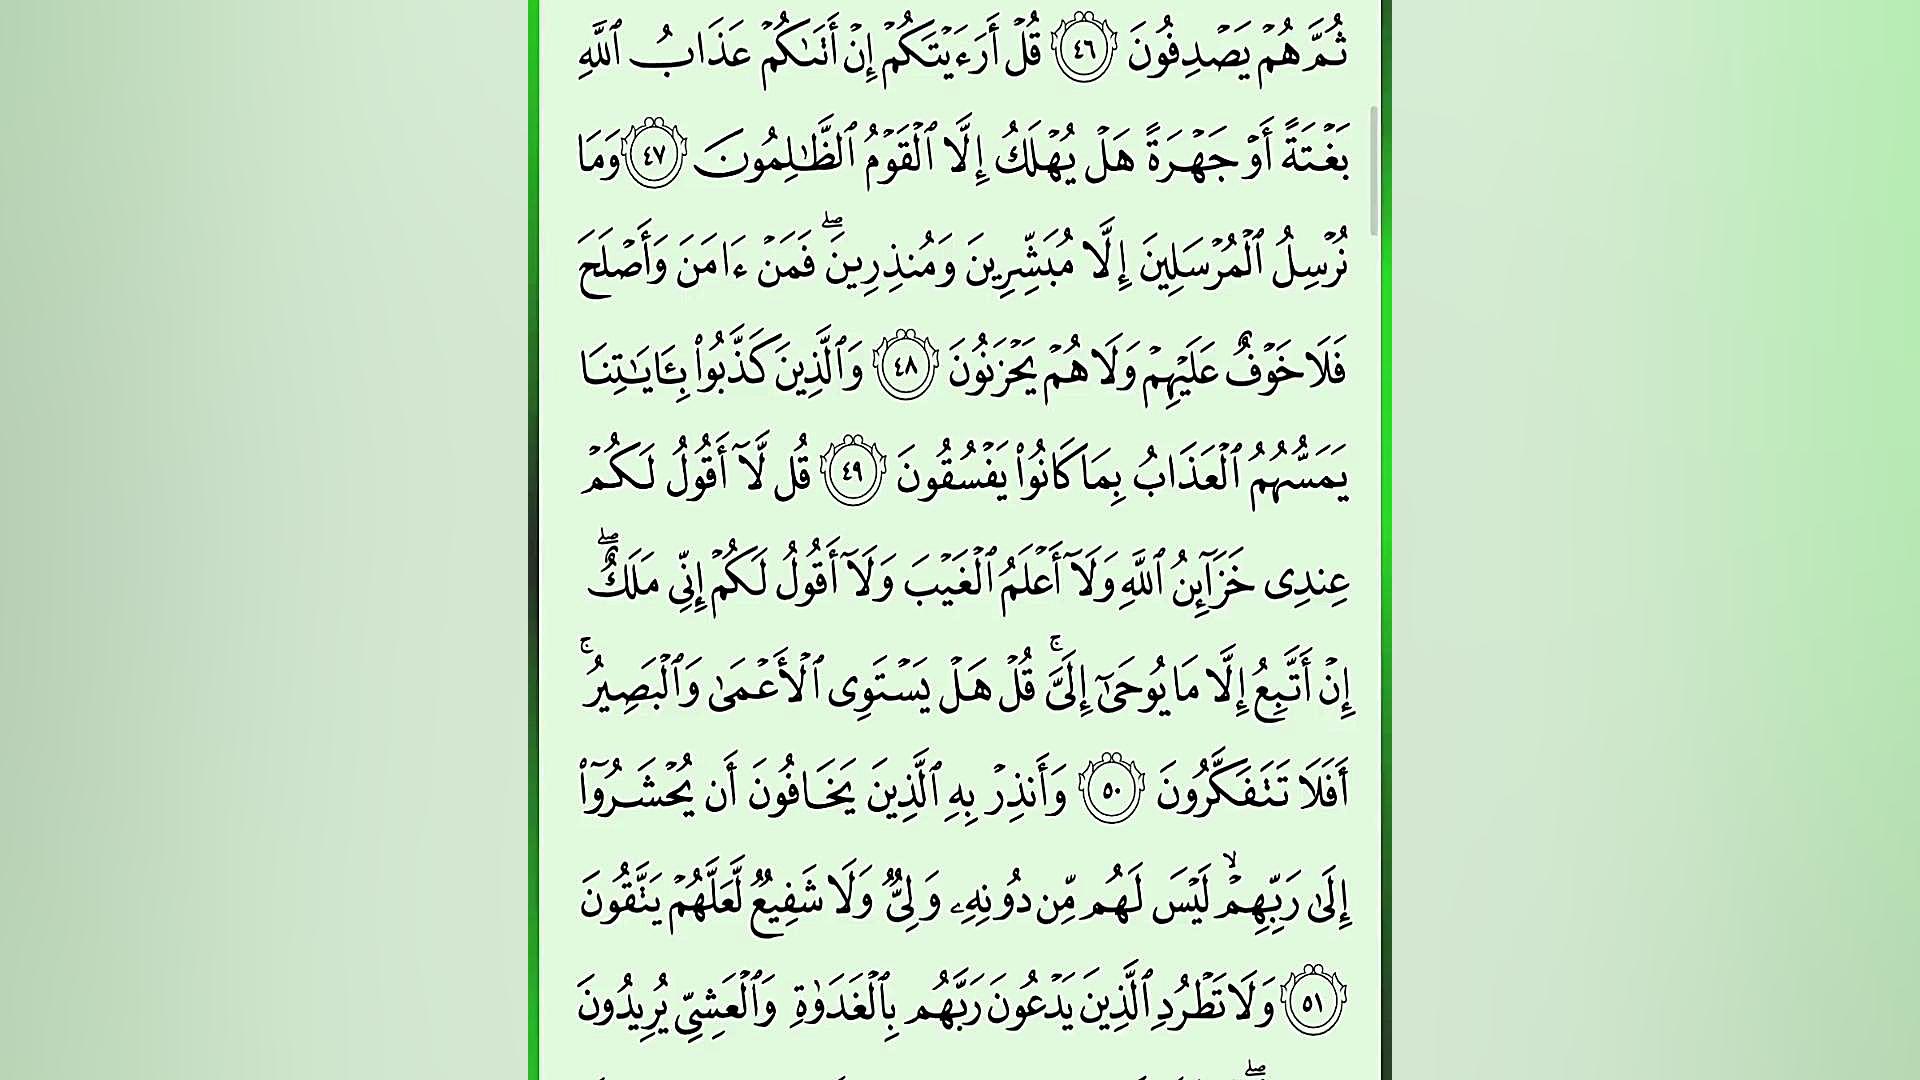 ثُمَّ هُمْ يَصْدِفُونَ ٤٦ قُلْ أَرَءَيْتَكُمْ إِنْ أَتَىٰكُمْ عَذَابُ ٱللَّهِ
بَغْتَةً أَوْ جَهْرَةً هَلْ يُهْلَكُ إِلَّا ٱلْقَوْمُ ٱلظَّـٰلِمُونَ ٤٧ وَمَا
نُرْسِلُ ٱلْمُرْسَلِينَ إِلَّا مُبَشِّرِينَ وَمُنذِرِينَ ۖ فَمَنْ ءَامَنَ وَأَصْلَحَ
فَلَا خَوْفٌ عَلَيْهِمْ وَلَا هُمْ يَحْزَنُونَ ٤٨ وَٱلَّذِينَ كَذَّبُوا۟ بِـَٔايَـٰتِنَا
يَمَسُّهُمُ ٱلْعَذَابُ بِمَا كَانُوا۟ يَفْسُقُونَ ٤٩ قُل لَّآ أَقُولُ لَكُمْ
عِندِى خَزَآئِنُ ٱللَّهِ وَلَآ أَعْلَمُ ٱلْغَيْبَ وَلَآ أَقُولُ لَكُمْ إِنِّى مَلَكٌ ۖ
إِنْ أَتَّبِعُ إِلَّا مَا يُوحَىٰٓ إِلَىَّ ۚ قُلْ هَلْ يَسْتَوِى ٱلْأَعْمَىٰ وَٱلْبَصِيرُ ۚ
أَفَلَا تَتَفَكَّرُونَ ٥٠ وَأَنذِرْ بِهِ ٱلَّذِينَ يَخَافُونَ أَن يُحْشَرُوٓا۟
إِلَىٰ رَبِّهِمْ ۙ لَيْسَ لَهُم مِّن دُونِهِۦ وَلِىٌّ وَلَا شَفِيعٌ لَّعَلَّهُمْ يَتَّقُونَ
٥١ وَلَا تَطْرُدِ ٱلَّذِينَ يَدْعُونَ رَبَّهُم بِٱلْغَدَوٰةِ وَٱلْعَشِىِّ يُرِيدُونَ